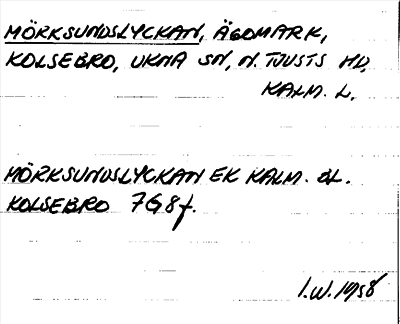 MÖRKSUNDSLYCKAN, ÄGOMARK,
KOLSEBRO, UKNA SN, N. TJUSTS HD,
KALM. L.
MÖRKSUNDSLYCKAN EK KALM. BL.
KOLSEBRO 7G8f.
I.W. 1958